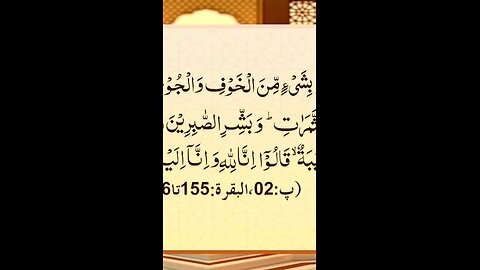 بِشَیْءٍ مِّنَ الْخَوْفِ وَ الْجُوْ
ثَّمَرٰتِؕ وَ بَشِّرِ الصّٰبِرِیْنَ
یْبَةٌۙ قَالُوْۤا اِنَّا لِلّٰهِ وَ اِنَّاۤ اِلَیْ
(پ:02، البقرة:155تا6